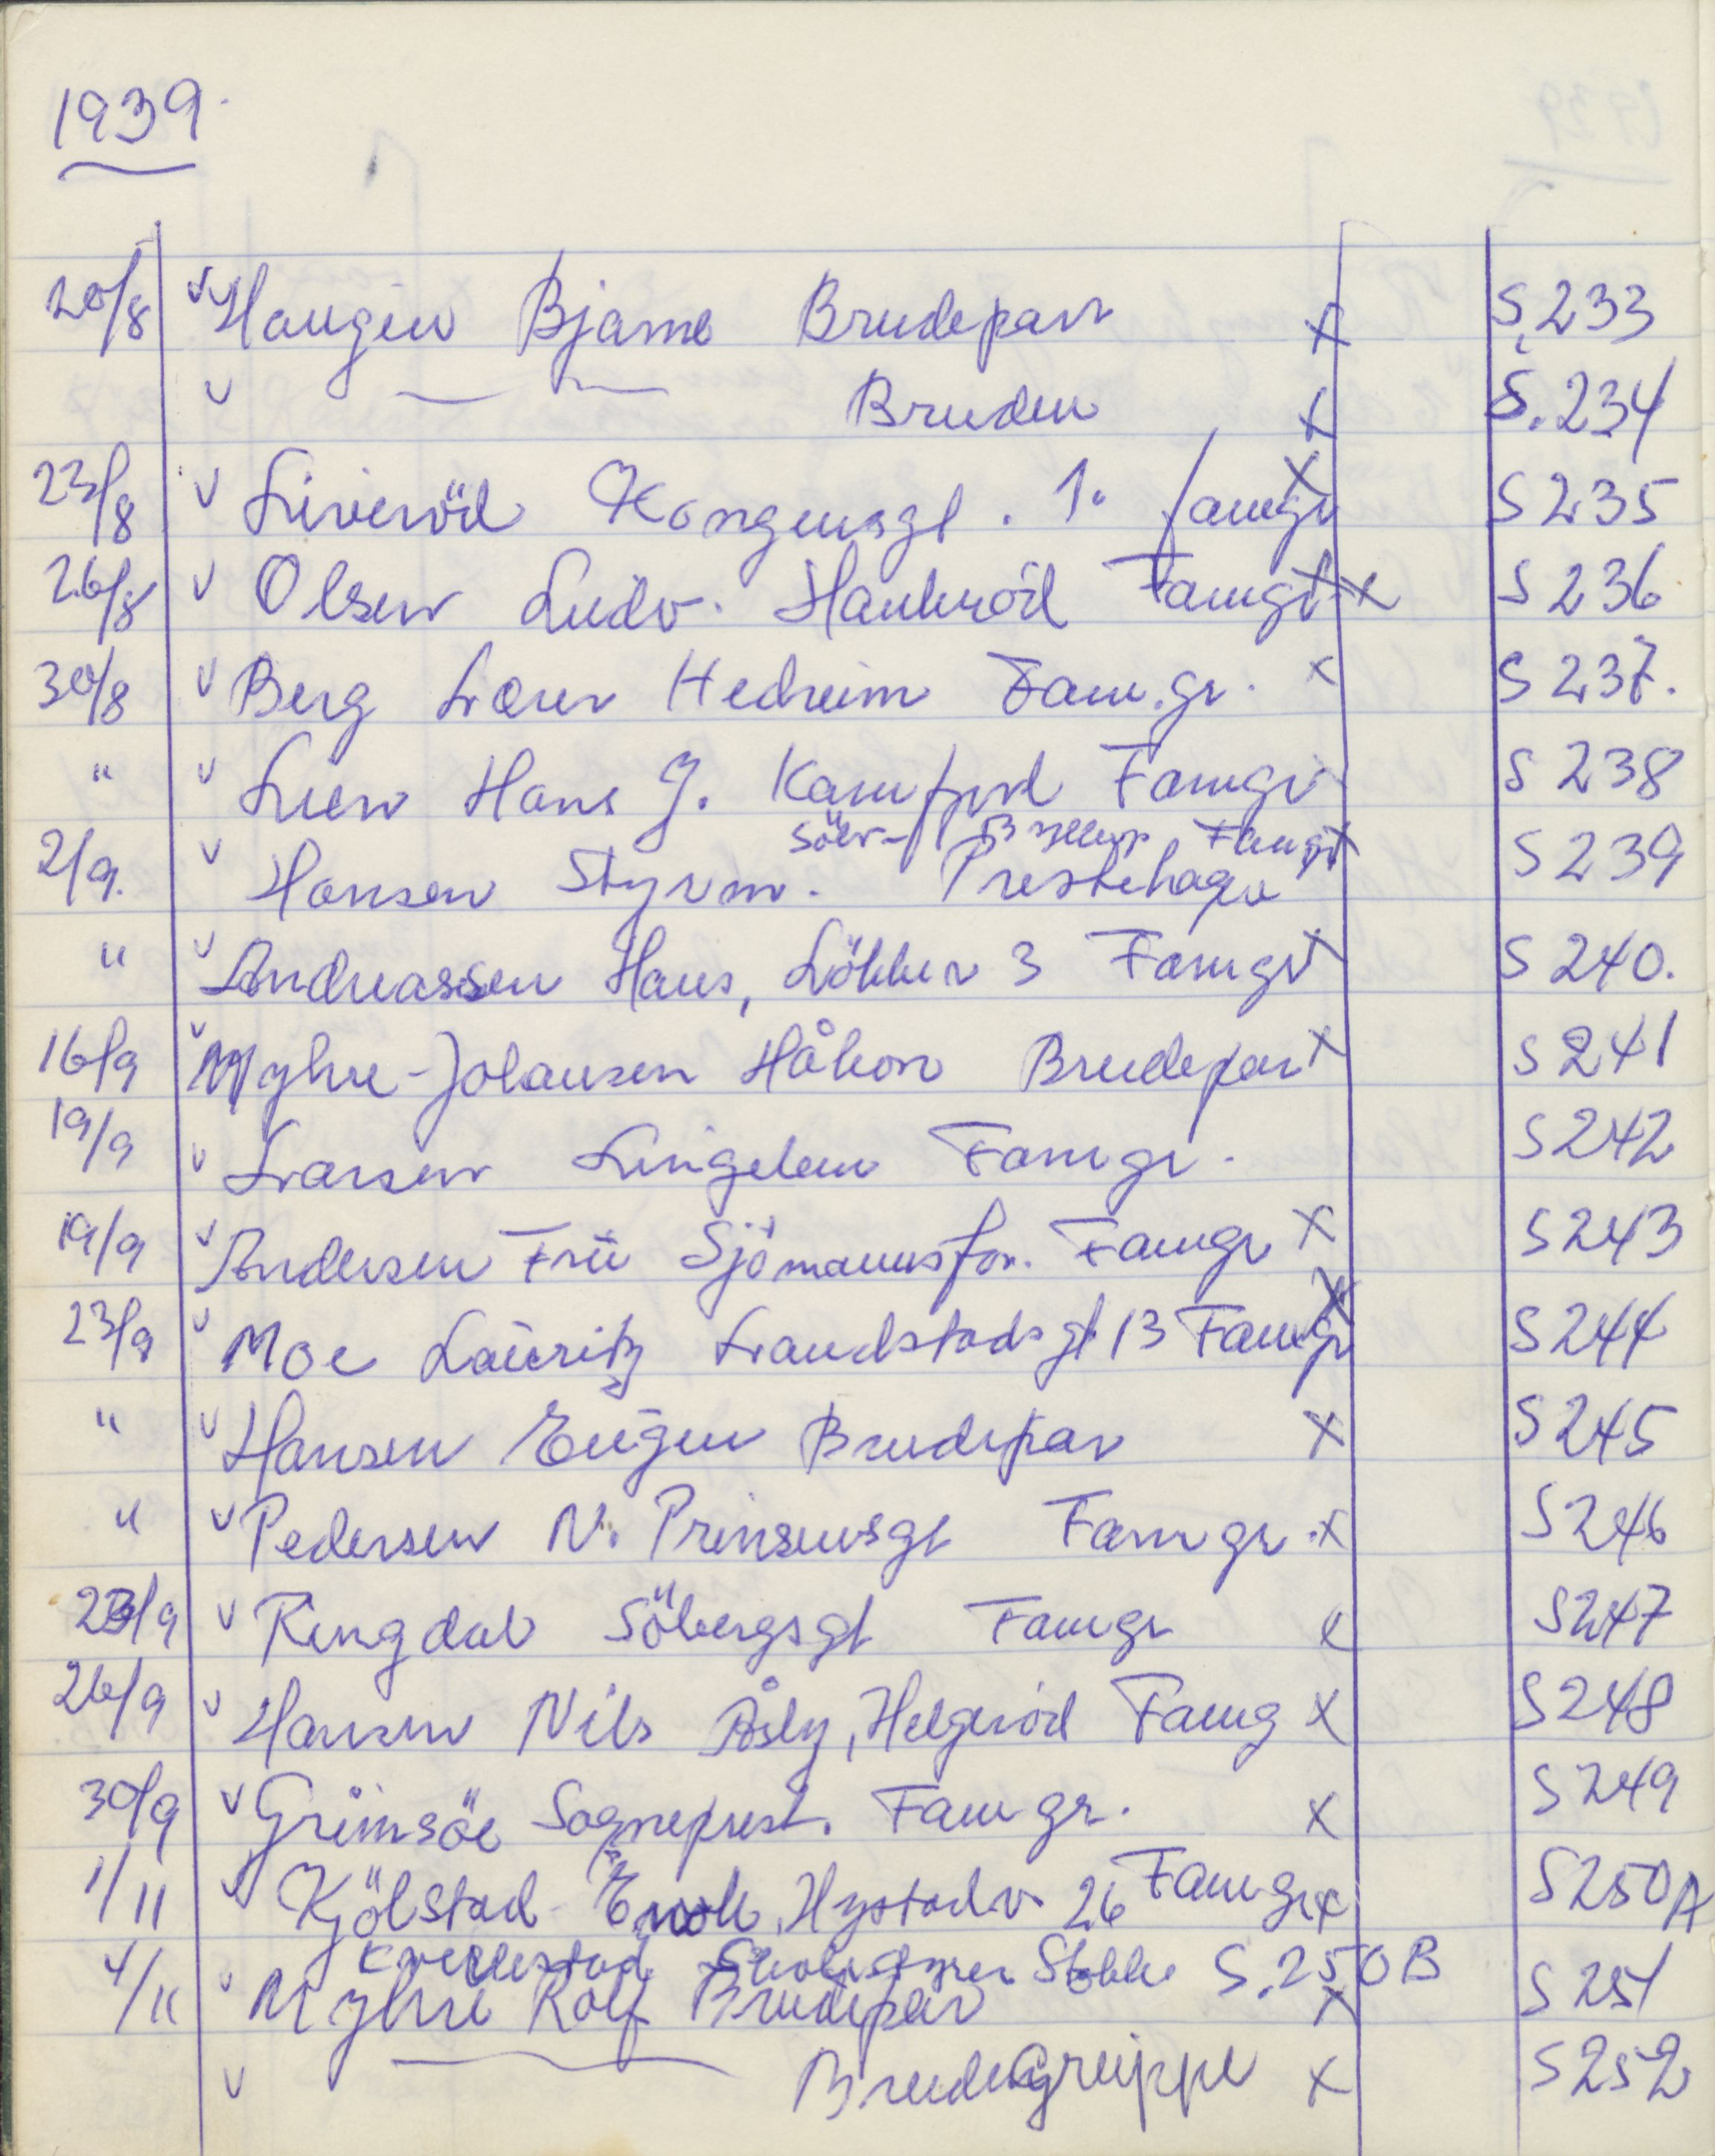 1939.
20/8 v Haugen Bjarne Brudepar x S.233
v — " — Bruden x S.234
23/8 v Liveröd Kongensgt. 1. famgr x S235
26/8 v Olsen Ludv. Haukeröd Famgr x x S236
30/8 v Berg Lærer Hedrum Fam.gr. x S237.
" v Lien Hans J. Kamfjord Famgr S238
Sölv-Bryllup Famgr x
2/9. v Hansen Styrm. Prestehage S239
" v Andreassen Hans, Lökka 3 Famgr x S240.
16/9 v Myhre-Johansen Håkon Brudepar x S241
19/9 v Larsen Lingelem Famgr. S242
19/9 v Andersen Frü Sjömannsfor. Famgr x S243
23/9 v Moe Lauritz Landstadsgt 13 Famgr x S244
" v Hansen Eugen Brudepar x S245
" v Pedersen N. Prinsensgt Famgr x S246
23/9 v Ringdal Söbergsgt Famgr x S247
26/9 v Hansen Nils Åsly, Helgeröd Famg x S248
30/9 v Grimsöe Sogneprest. Famgr. x S249
1/11 v Kjölstad Hystadv. 26 Famgr x S250A
Stokke S.250B
4/11 v Myhre Rolf Brudepar x S251
v — Brudegruppe x S252